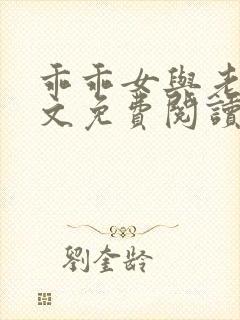 乖乖女與老
文免費閱讀
劉奎齡